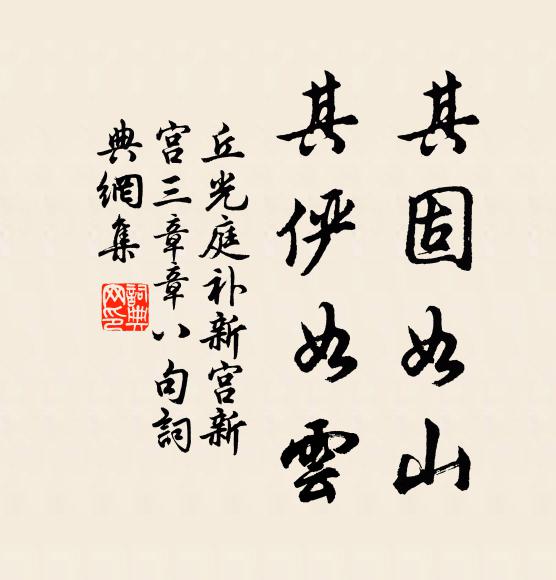 其固如山
其俨如雲
丘光庭补新宫新
宫三章章八句詞
典網集
詞典
网印